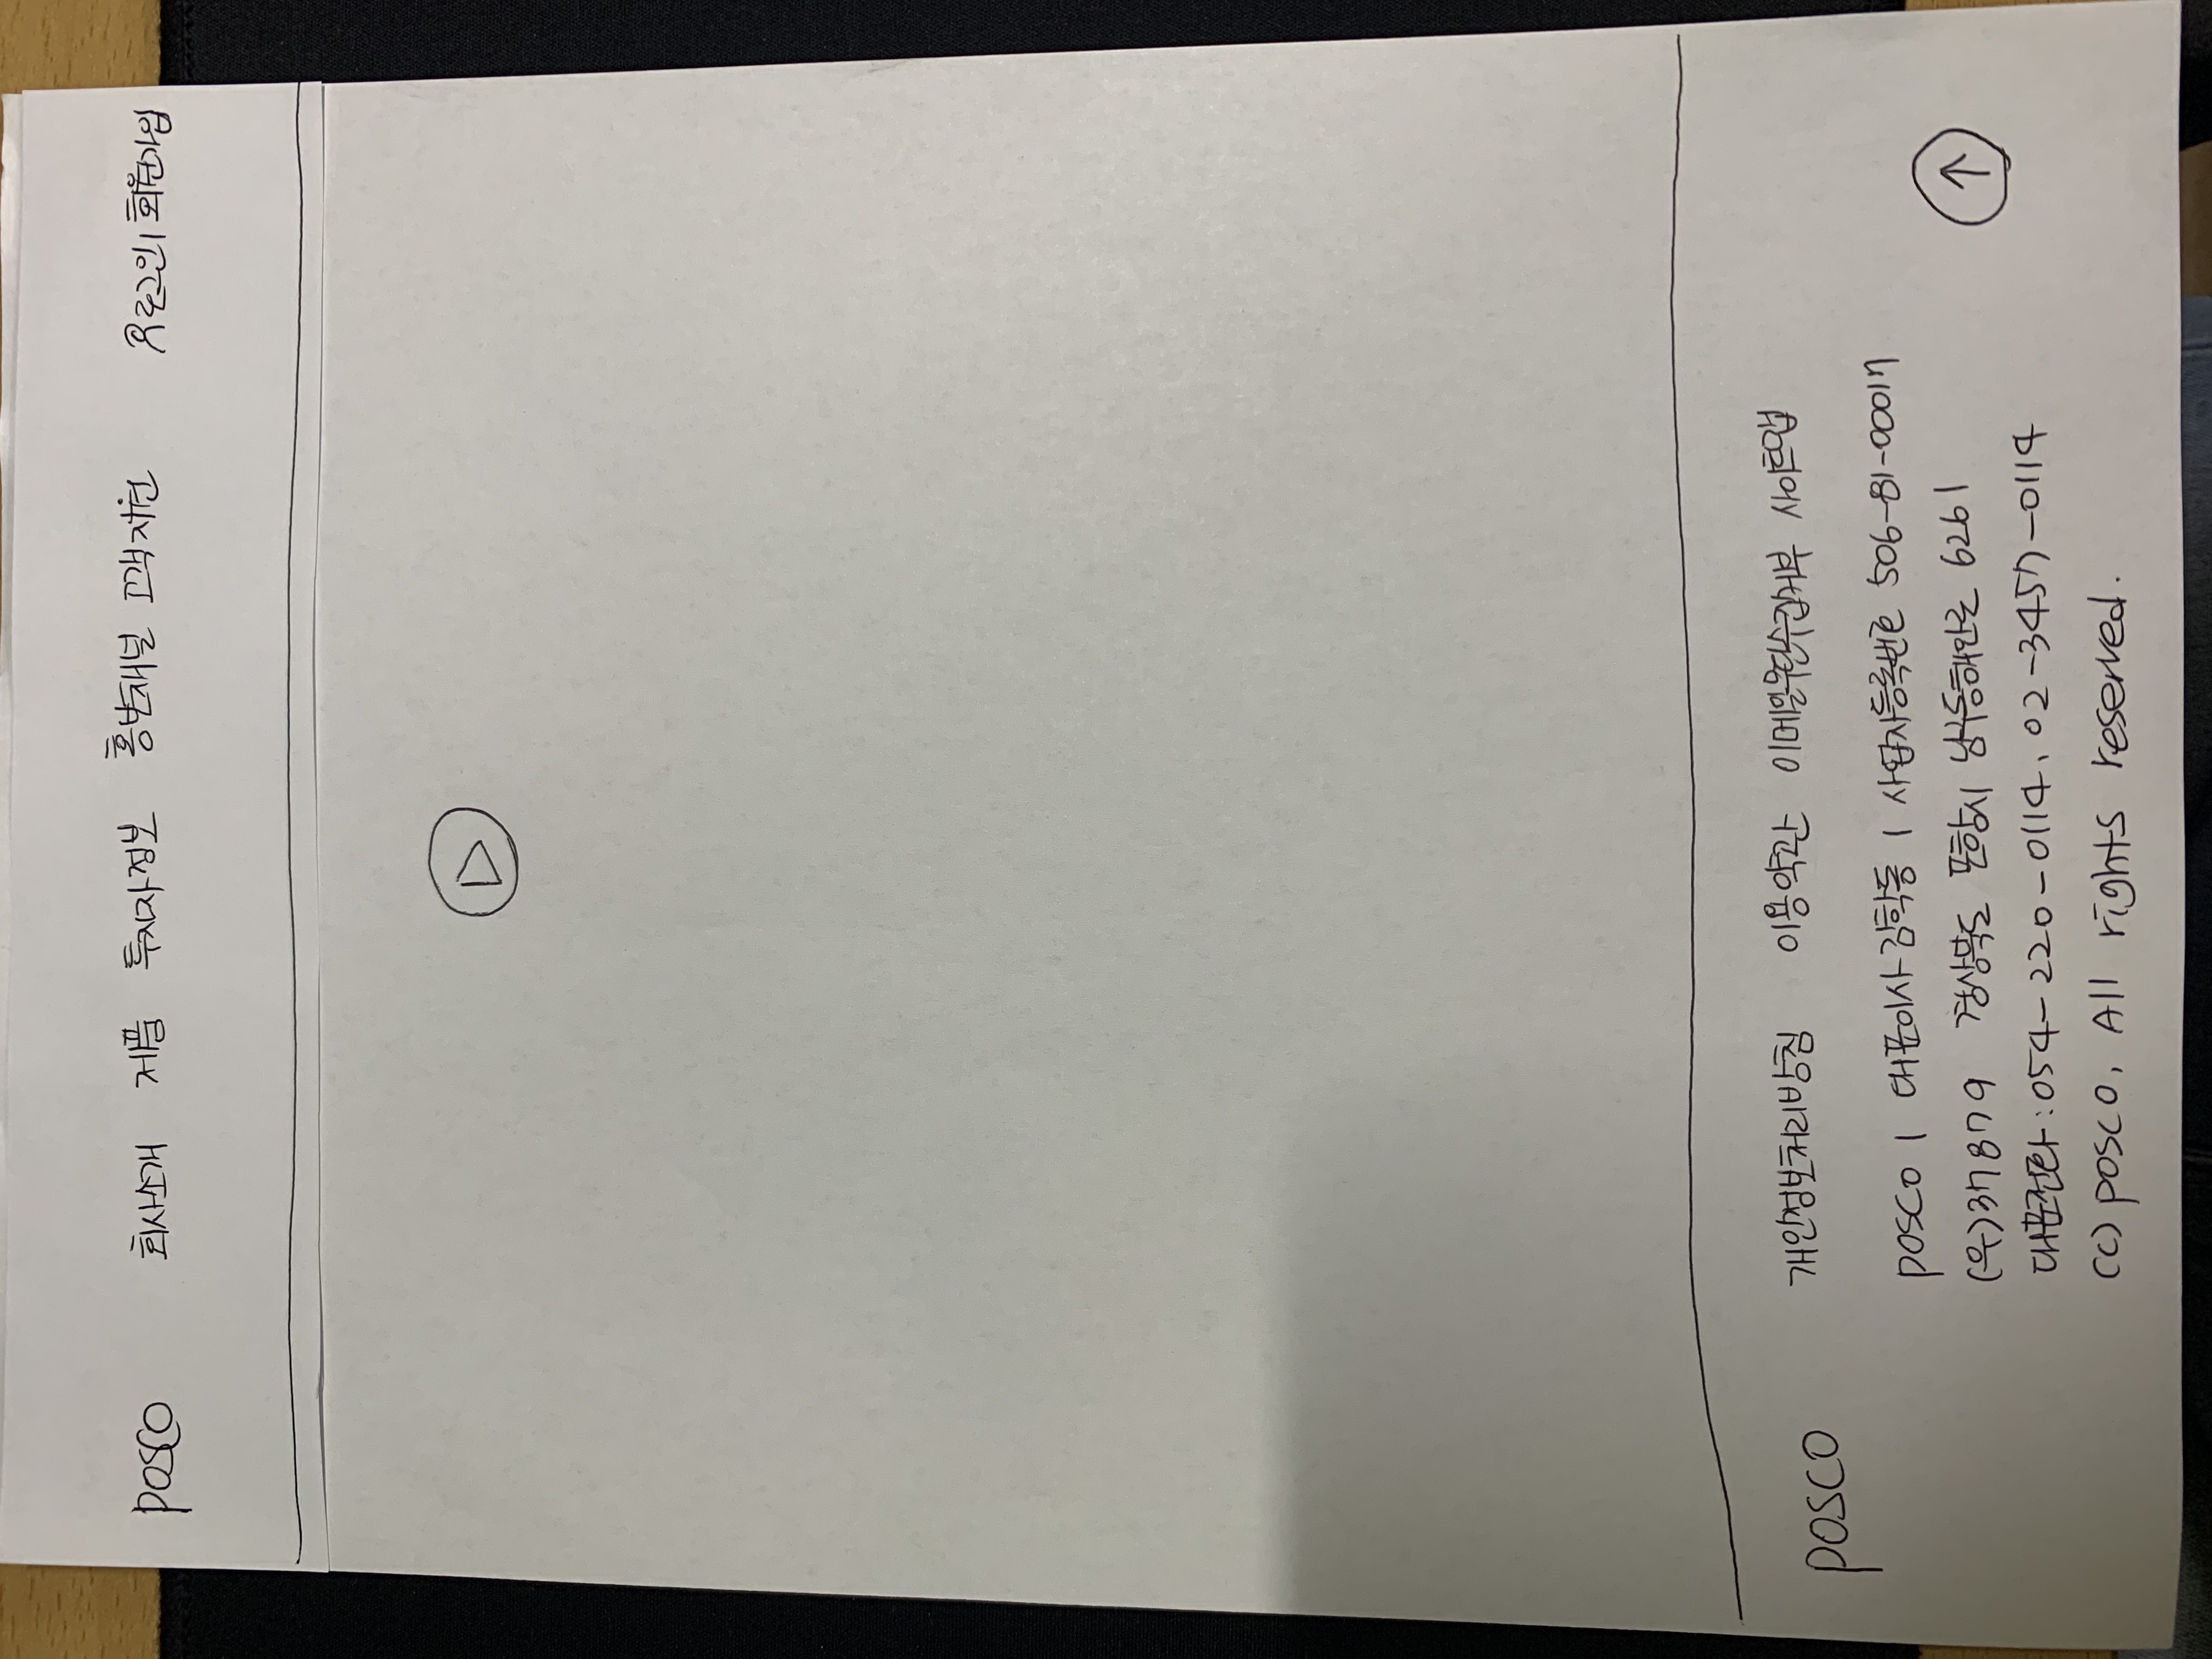 posco 회사소개 제품 투자자정보 홍보채널 고객지원 로그인 | 회원가입
posco 개인정보처리방침 이용약관 이메일무단수집거부 사이트맵
posco | 대표이사 김학동 | 사업자등록번호 506-81-00017
(우)37879 경상북도 포항시 남구동해안로 6261
대표전화 : 054-220-0114, 02-3457-0114
(c) posco, All rights reserved.